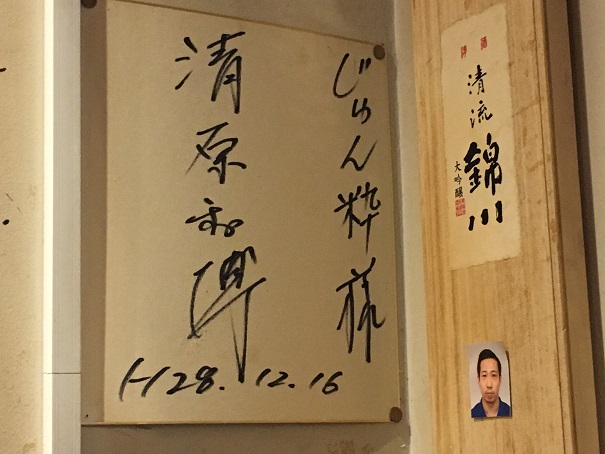 じゅん粋様
清原和博
H28.12.16
清流
錦川
大吟醸